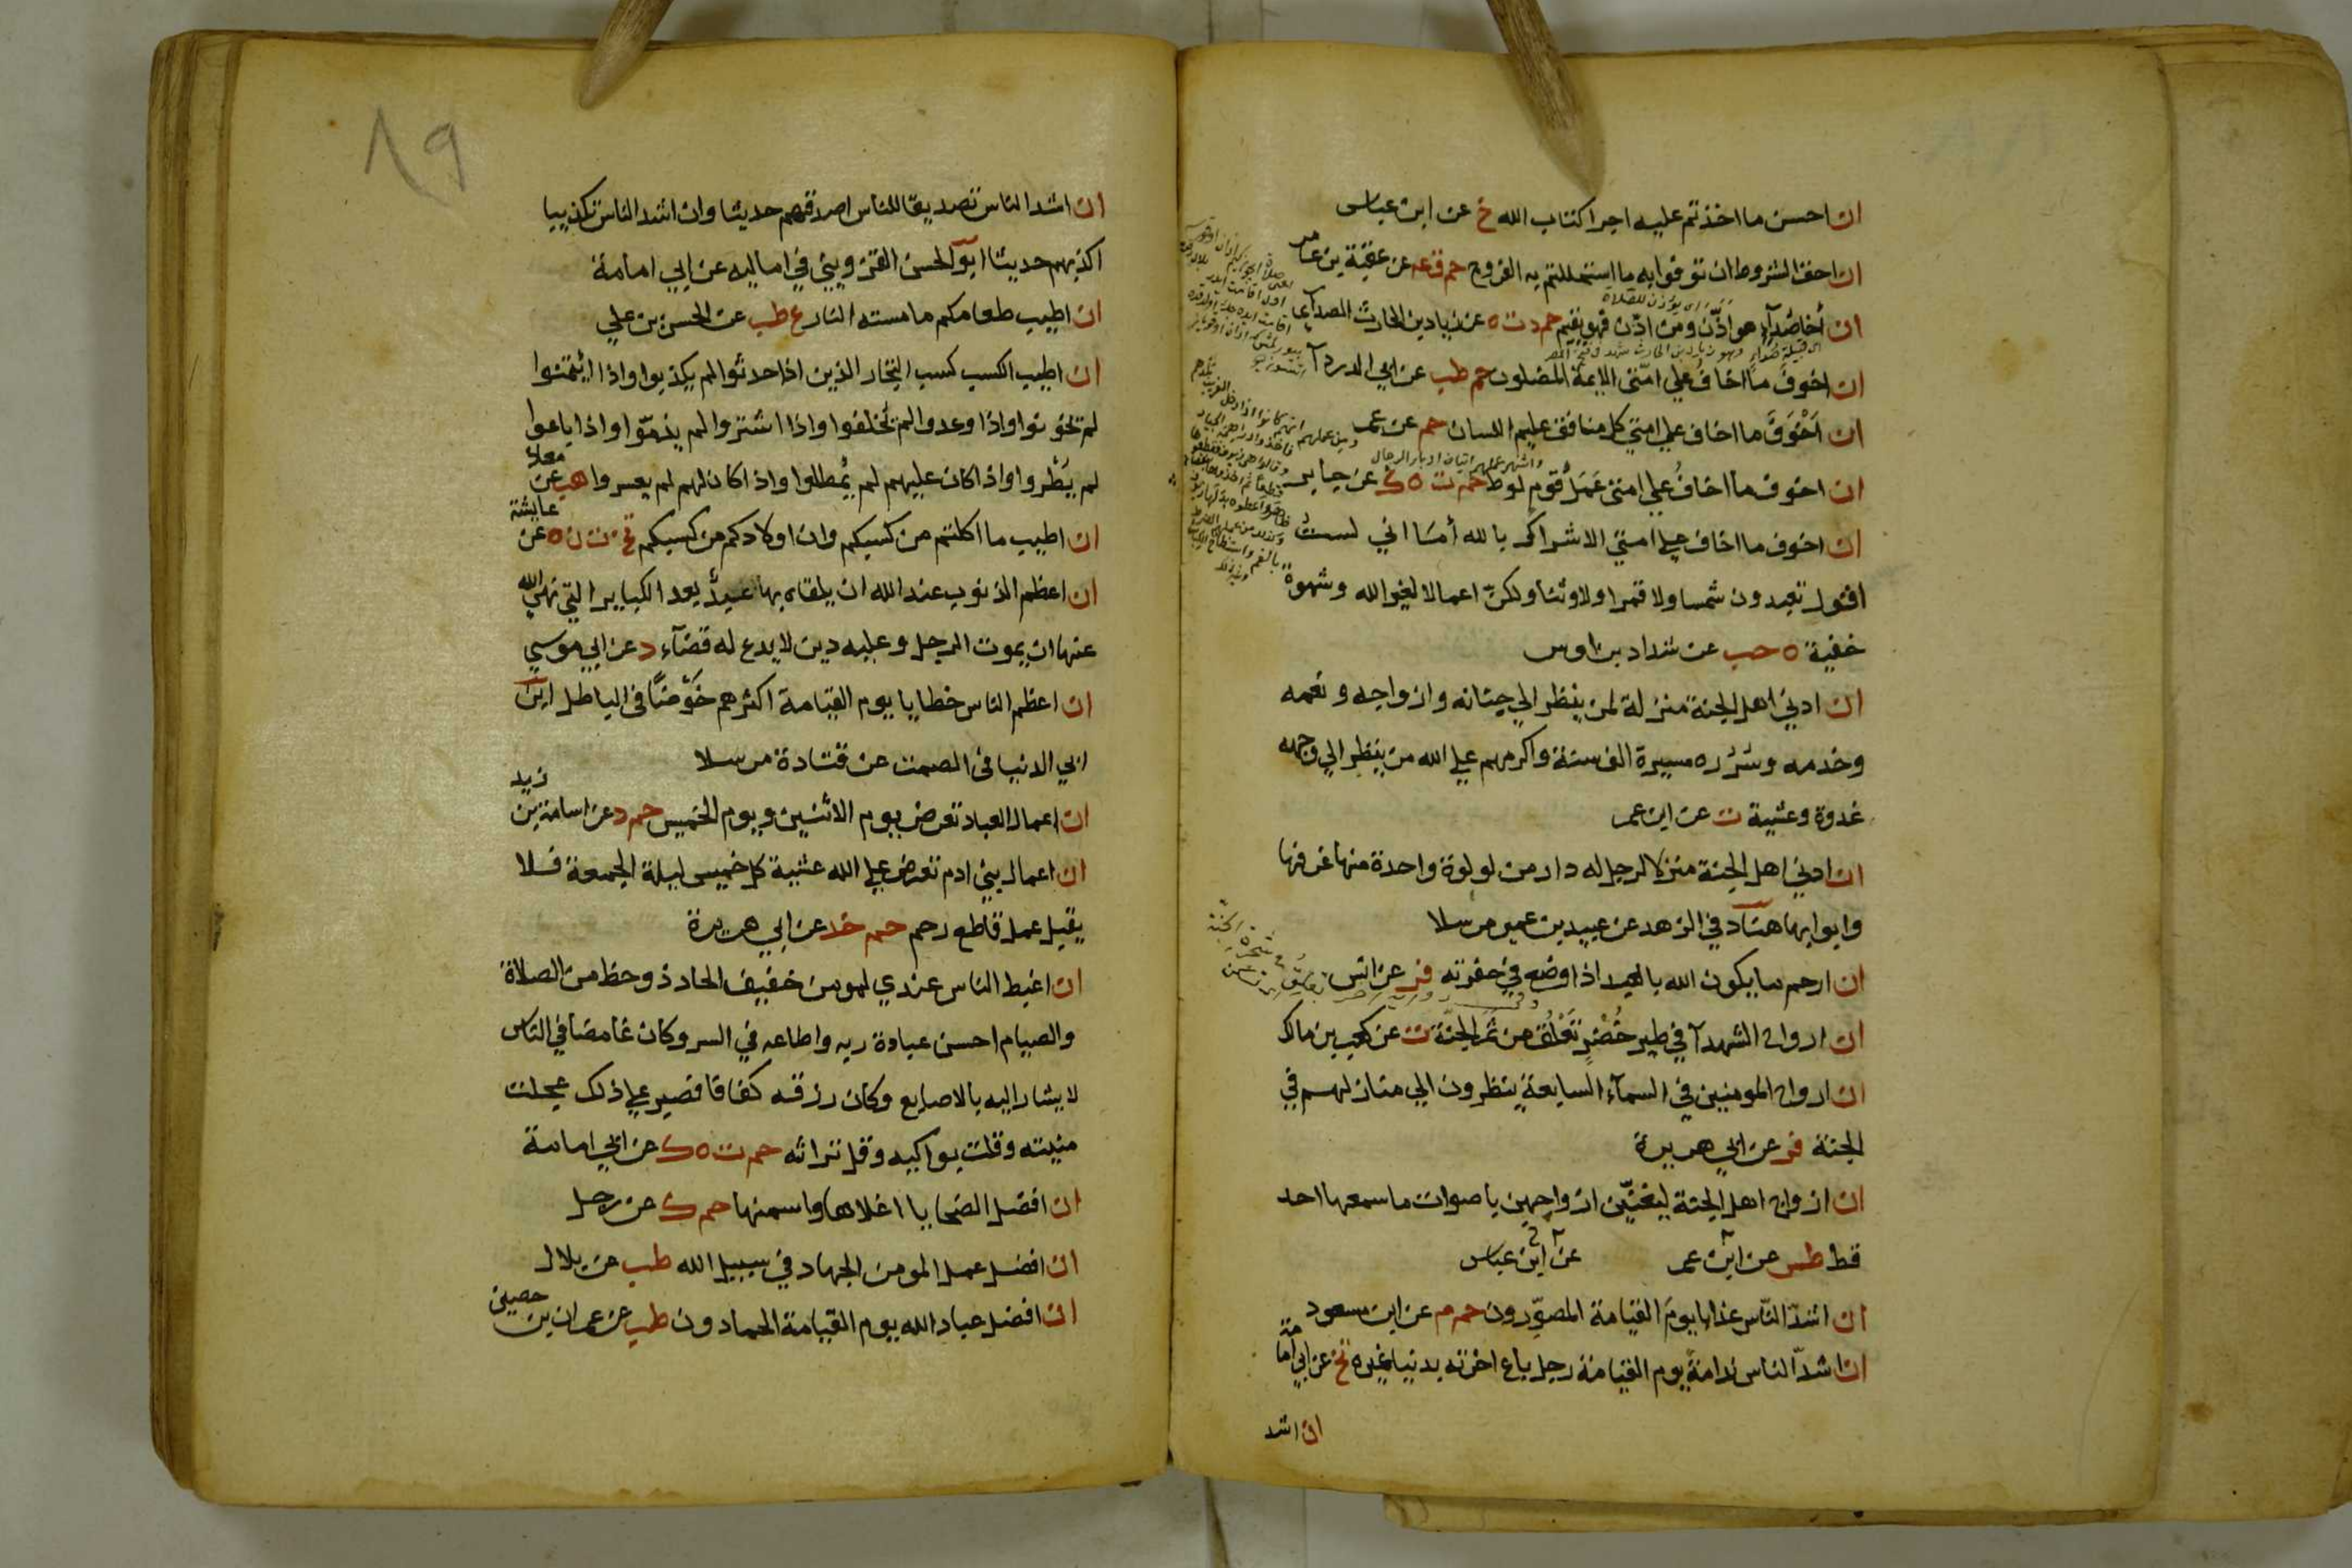 ان احسن ما اخذتم عليه اجرا كتاب الله خ عن ابن عباس
ان احق الشروط ان توفوا به ما استحللتم به الفروج حم ق عه عن عقبة بن عامر
اى يؤذن للصلاة
ان أخا صُدآءٍ هو اذّن ومن اذّن فهو يقيم حم د ت ه عن زياد بن الحارث الصدآي
اى قبيلة صُدَاءٍ وهو زياد بن الحارث شهد فتح مصر
ان اخوفَ ما اخافُ علي امّتي الايمة المضلون حم طب عن ابي الدردآ
ان اَخْوَفَ ما اخاف علي امتي كل منافق عليم اللسان حم عن عمر
واشهر عملهم اتيان ادبار الرجال
ان اخوف ما اخافُ علي امتي عَمَلُ قوم لوط حم ت ه ك عن جابر
ان اخوف ما اخاف علي امتي الاشراك بالله أمَا اني لستُ
اقول تعبدون شمسا ولا قمرا ولا وثنا ولكنّ اعمالا لغير الله وشهوة
خفية ه حب عن شداد بن اوس
ان ادني اهل الجنة منزلة لمن ينظر الي جنانه وازواجه ونعمه
وخدمه وسُرُره مسيرة الف سنة واكرمهم علي الله من ينظر الي وجهه
غدوة وعشية ت عن ابن عمر
ان ادني اهل الجنة منزلا لرجل له دار من لولوة واحدة منها غرفها
وابوابها هناد في الزهد عن عبيد بن عمير مرسلا
ان ارحم ما يكون الله بالعبد اذا وضع في حفرته فر عن انس
ان ارواح الشهدآ في طير خُضْرٍ تَعْلُقُ من ثَمَر الجنّة ت عن كعب بن مالك
ان ارواح المومنين في السمآء السابعة ينظرون الي منازلهم في
الجنة فر عن ابي هريرة
ان ازواج اهل الجنة ليغنّين ازواجهن باصوات ما سمعها احد
قط طس عن ابن عمر عن ابن عباس
ان اشدّ النّاس عذابا يومَ القيامة المصوّرون حم م عن ابن مسعود
ان اشدّ الناس ندامةً يوم القيامة رجل باع اخرته بدنيا غيره تخ عن ابي امامة
ان اشد
٨٩
ان اشد الناس تصديقا للناس اصدقهم حديثا وان اشد الناس تكذيبا
اكذبهم حديثا ابو الحسن القزويني في اماليه عن ابي امامة
ان اطيب طعامكم ما مسته النار ع طب عن الحسن بن علي
ان اطيب الكسب كسب التجار الذين اذا حدثوا لم يكذبوا واذا ائتمنوا
لم يخونوا واذا وعدوا لم يُخلفوا واذا اشتروا لم يذمّوا واذا باعوا
لم يَطْروا واذا كان عليهم لم يُمطلوا واذا كان لهم لم يعسروا هب عن معاذ
ان اطيب ما اكلتم من كسبكم وان اولادكم من كسبكم تخ ت ن ه عن عايشة
ان اعظم الذنوب عند الله ان يلقاه بها عبدٌ بعد الكباير التي نهي الله
عنها ان يموت الرجل وعليه دين لا يدع له قضآء د عن ابي موسي
ان اعظم الناس خطايا يوم القيامة اكثرهم خَوْضًا في الباطل ابن
ابي الدنيا في الصمت عن قتادة مرسلا
ان اعمال العباد تعرض يوم الاثنين ويوم الخميس حم د عن اسامة بن زيد
ان اعمال بني ادم تعرض علي الله عشية كل خميس ليلة الجمعة فلا
يقبل عمل قاطع رحم حم خد عن ابي هريرة
ان اغبط الناس عندي لمومن خفيف الحاذ ذو حظ من الصلاة
والصيام احسن عبادة ربه واطاعه في السر وكان غامضا في الناس
لا يشار اليه بالاصابع وكان رزقه كفافا فصبر علي ذلك عجلت
منيته وقلت بواكيه وقل تراثه حم ت ه ك عن ابي امامة
ان افضل الضحايا اغلاها واسمنها حم ك عن رجل
ان افضل عمل المومن الجهاد في سبيل الله طب عن بلال
ان افضل عباد الله يوم القيامة الحمادون طب عن عمران بن حصين